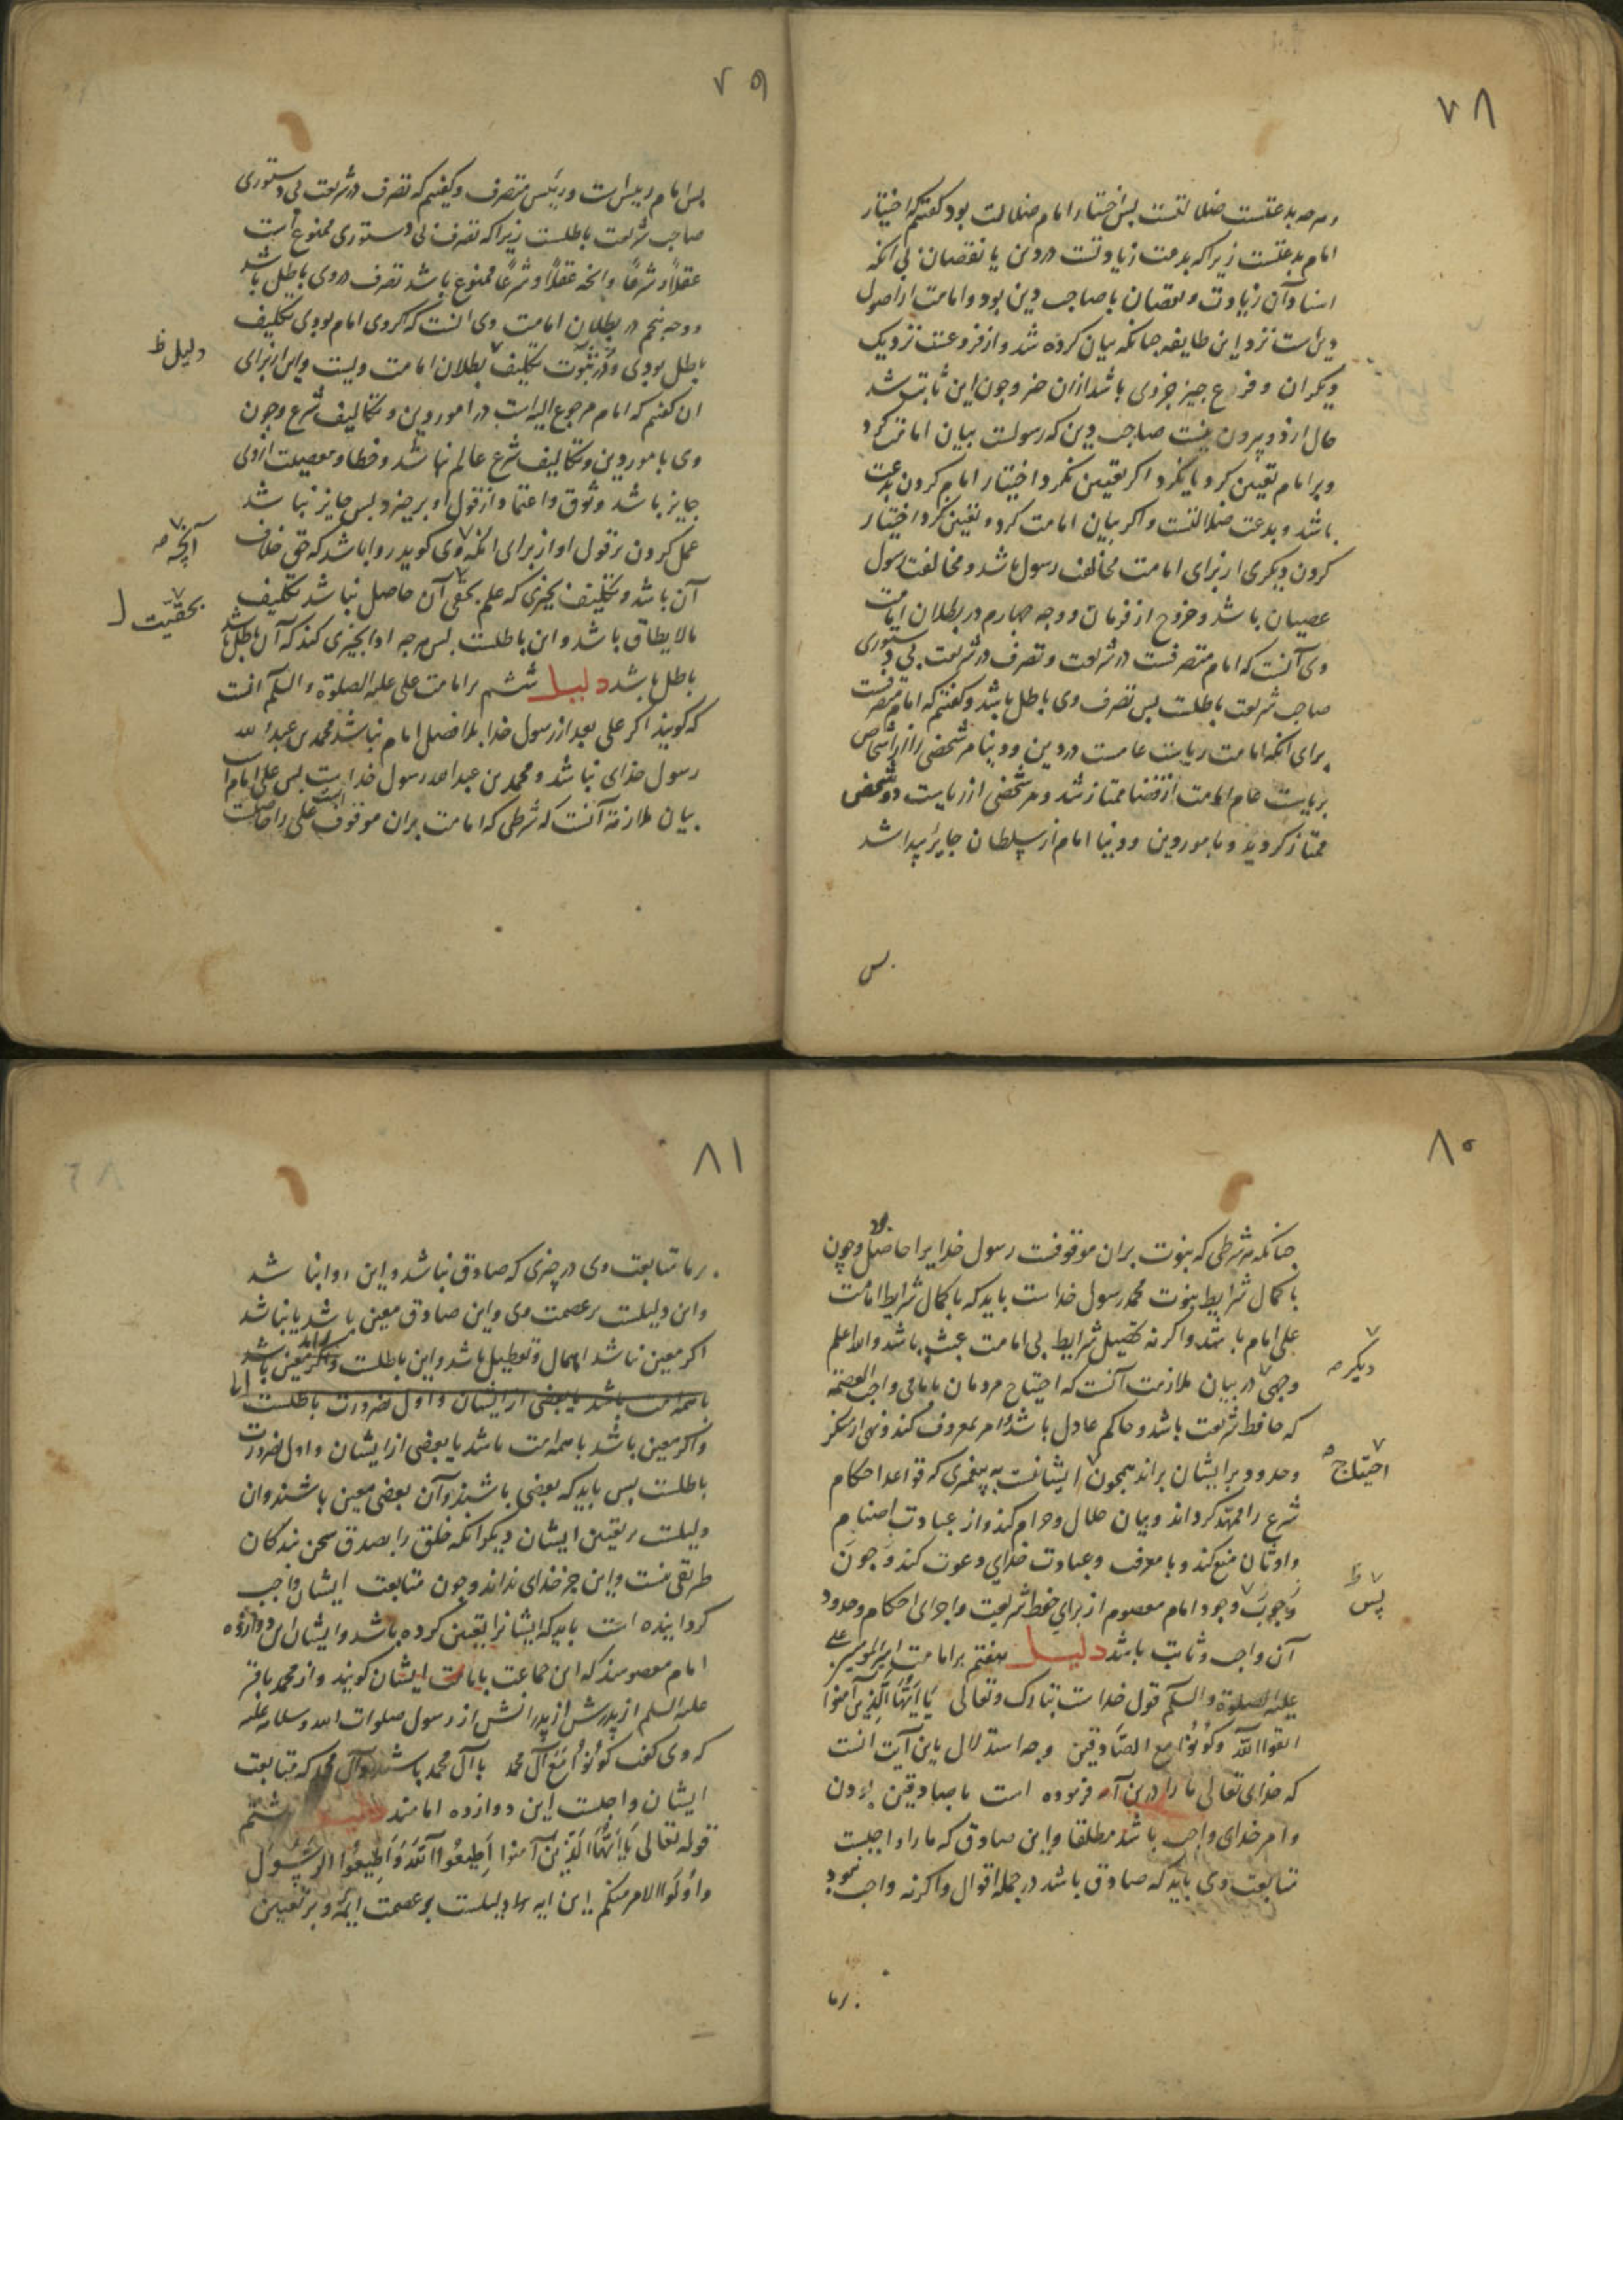 ۷۸
و هر چه بدعتست ضلالتست پس اختیار امام ضلالت بود کفتیم که اختیار
امام بدعتست زیرا که بدعت زیادتست در دین یا نقصان بی انکه
اسناد آن زیادت و نقصان با صاحب دین بود و امامت از اصول
دین است نزد این طایفه جنانکه بیان کرده شد و از فروعست نزدیک
دیکران و فروع جیز جزوی باشد ازان جیز و جون این ثابت شد
حال از دو بیرون نیست صاحب دین که رسولست بیان امامت کرد
و بر امام تعیین کرد یا نکرد اکر تعیین نکرد اختیار امام کردن بدعت
باشد و بدعت ضلالتست و اکر بیان امامت کرد و تعیین کرد اختیار
کردن دیکری از برای امامت مخالفت رسول باشد و مخالفت رسول
عصیان باشد و خروج از فرمان و وجه جهارم در بطلان امامت
وی آنست که امام متصرفست در شریعت و تصرف در شریعت بی دستوری
صاحب شریعت باطلست پس تصرف وی باطل باشد و کفتیم که امام متصرفست
برای انکه امامت ریاست عامست در دین و دنیا مر شخصی را از اشخاص
بریاست عام امامت از قضا ممتاز شد و مر شخصی از ریاست دو شخص
ممتاز کردید و بامور دین و دنیا امام از سلطان جایر بیدا شد
پس
۷۹
پس امام رییس است و رییس متصرف و کفتیم که تصرف در شریعت بی دستوری
صاحب شریعت باطلست زیرا که تصرف بی دستوری ممنوع است
عقلا و شرعا و انجه عقلا و شرعا ممنوع باشد تصرف در وی باطل باشد
و وجه پنجم در بطلان امامت وی انست که اکر وی امام بودی تکلیف
باطل بودی و در ثبوت تکلیف بطلان امامت ویست و این از برای
دلیل ظ
ان کفتیم که امام مرجوع الیه است در امور دین و تکالیف شرع و جون
وی بامور دین و تکالیف شرع عالم نباشد و خطا و معصیت از وی
جایز باشد وثوق و اعتماد از قول او برخیزد پس جایز نباشد
عمل کردن بر قول او از برای انکه وی کوید روا باشد که حق خلاف
آنچه صـ
آن باشد و تکلیف بجیزی که علم بحقی آن حاصل نباشد تکلیف
بحقیّت ل
مالایطاق باشد و این باطلست پس هر جه ادا بجیزی کند که آن باطل باشد
باطل باشد دلیل ششم بر امامت علی علیه الصلوة والسلم انست
که کویند اکر علی بعد از رسول خدا بلا فصل امام نباشد محمد بن عبد الله
رسول خدای نباشد و محمد بن عبد الله رسول خداست پس علی امام است
بیان ملازمة آنست که شرطی که امامت بران موقوف است علی را حاصلست
۸۰
جنانکه هر شرطی که نبوت بران موقوفست رسول خدایرا حاصل بود و چون
با کمال شرایط نبوت محمد رسول خداست باید که با کمال شرایط امامت
علی امام باشد و اکر نه تحصیل شرایط بی امامت عبث باشد والله اعلم
وجهی در بیان ملازمت آنست که احتیاج مردمان بامامی واجب العصمه
دیکر صـ
که حافظ شریعت باشد و حاکم عادل باشد و امر بمعروف کند و نهی از منکر
و حدود بر ایشان براند همچون ایشانست به پیغمبری که قواعد احکام
احتیاج صـ
شرع را ممهد کرداند و بیان حلال و حرام کند و از عبادت اصنام
و اوثان منع کند و با معرفت و عبادت خدای دعوت کند و جون
وجوب وجود امام معصوم از برای حفظ شریعت و اجرای احکام و حدود
پس ظ
آن واجب و ثابت باشد دلیل هفتم بر امامت امیر المومنین علی
علیه الصلوة والسلم قول خداست تبارک و تعالی یا ایها الذین آمنوا
اتقوا الله وکونوا مع الصادقین وجه استدلال باین آیت انست
که خدای تعالی ما را درین آیه فرموده است با صادقین بودن
و امر خدای واجب باشد مطلقا و این صادق که ما را واجبست
متابعت وی باید که صادق باشد در جمله اقوال و اکر نه واجب نبود
بر ما
۸۱
بر ما متابعت وی در چیزی که صادق نباشد و این روا نباشد
و این دلیلست بر عصمت وی و این صادق معین باشد یا نباشد
اکر معین نباشد اهمال و تعطیل باشد و این باطلست و اکر معین باشد
با همه امت باشد یا بعضی از ایشان و اول بضرورت باطلست اما
و اکر معین باشد با همه امت باشد یا بعضی از ایشان و اول بضرورت
باطلست پس باید که بعضی باشند و آن بعضی معین باشند و ان
دلیلست بر تعیین ایشان دیکر انکه خلق را بصدق سخن بندکان
طریقی نیست و این جز خدای نداند و جون متابعت ایشان واجب
کردانیده است باید که ایشانرا تعیین کرده باشد و ایشان این دوازده
امام معصومند که این جماعت بامامت ایشان کویند و از محمد باقر
علیه السلم از پدرش از پدرانش از رسول صلوات الله وسلامه علیه
که وی کفت کونوا مع آل محمد با آل محمد باشند و آل محمد که متابعت
ایشان واجبست این دوازده امامند دلیل هشتم
قوله تعالی یا ایها الذین آمنوا اطیعوا الله واطیعوا الرسول
واولوا الامر منکم این ایه هم دلیلست بر عصمت ایمه و بر تعیین